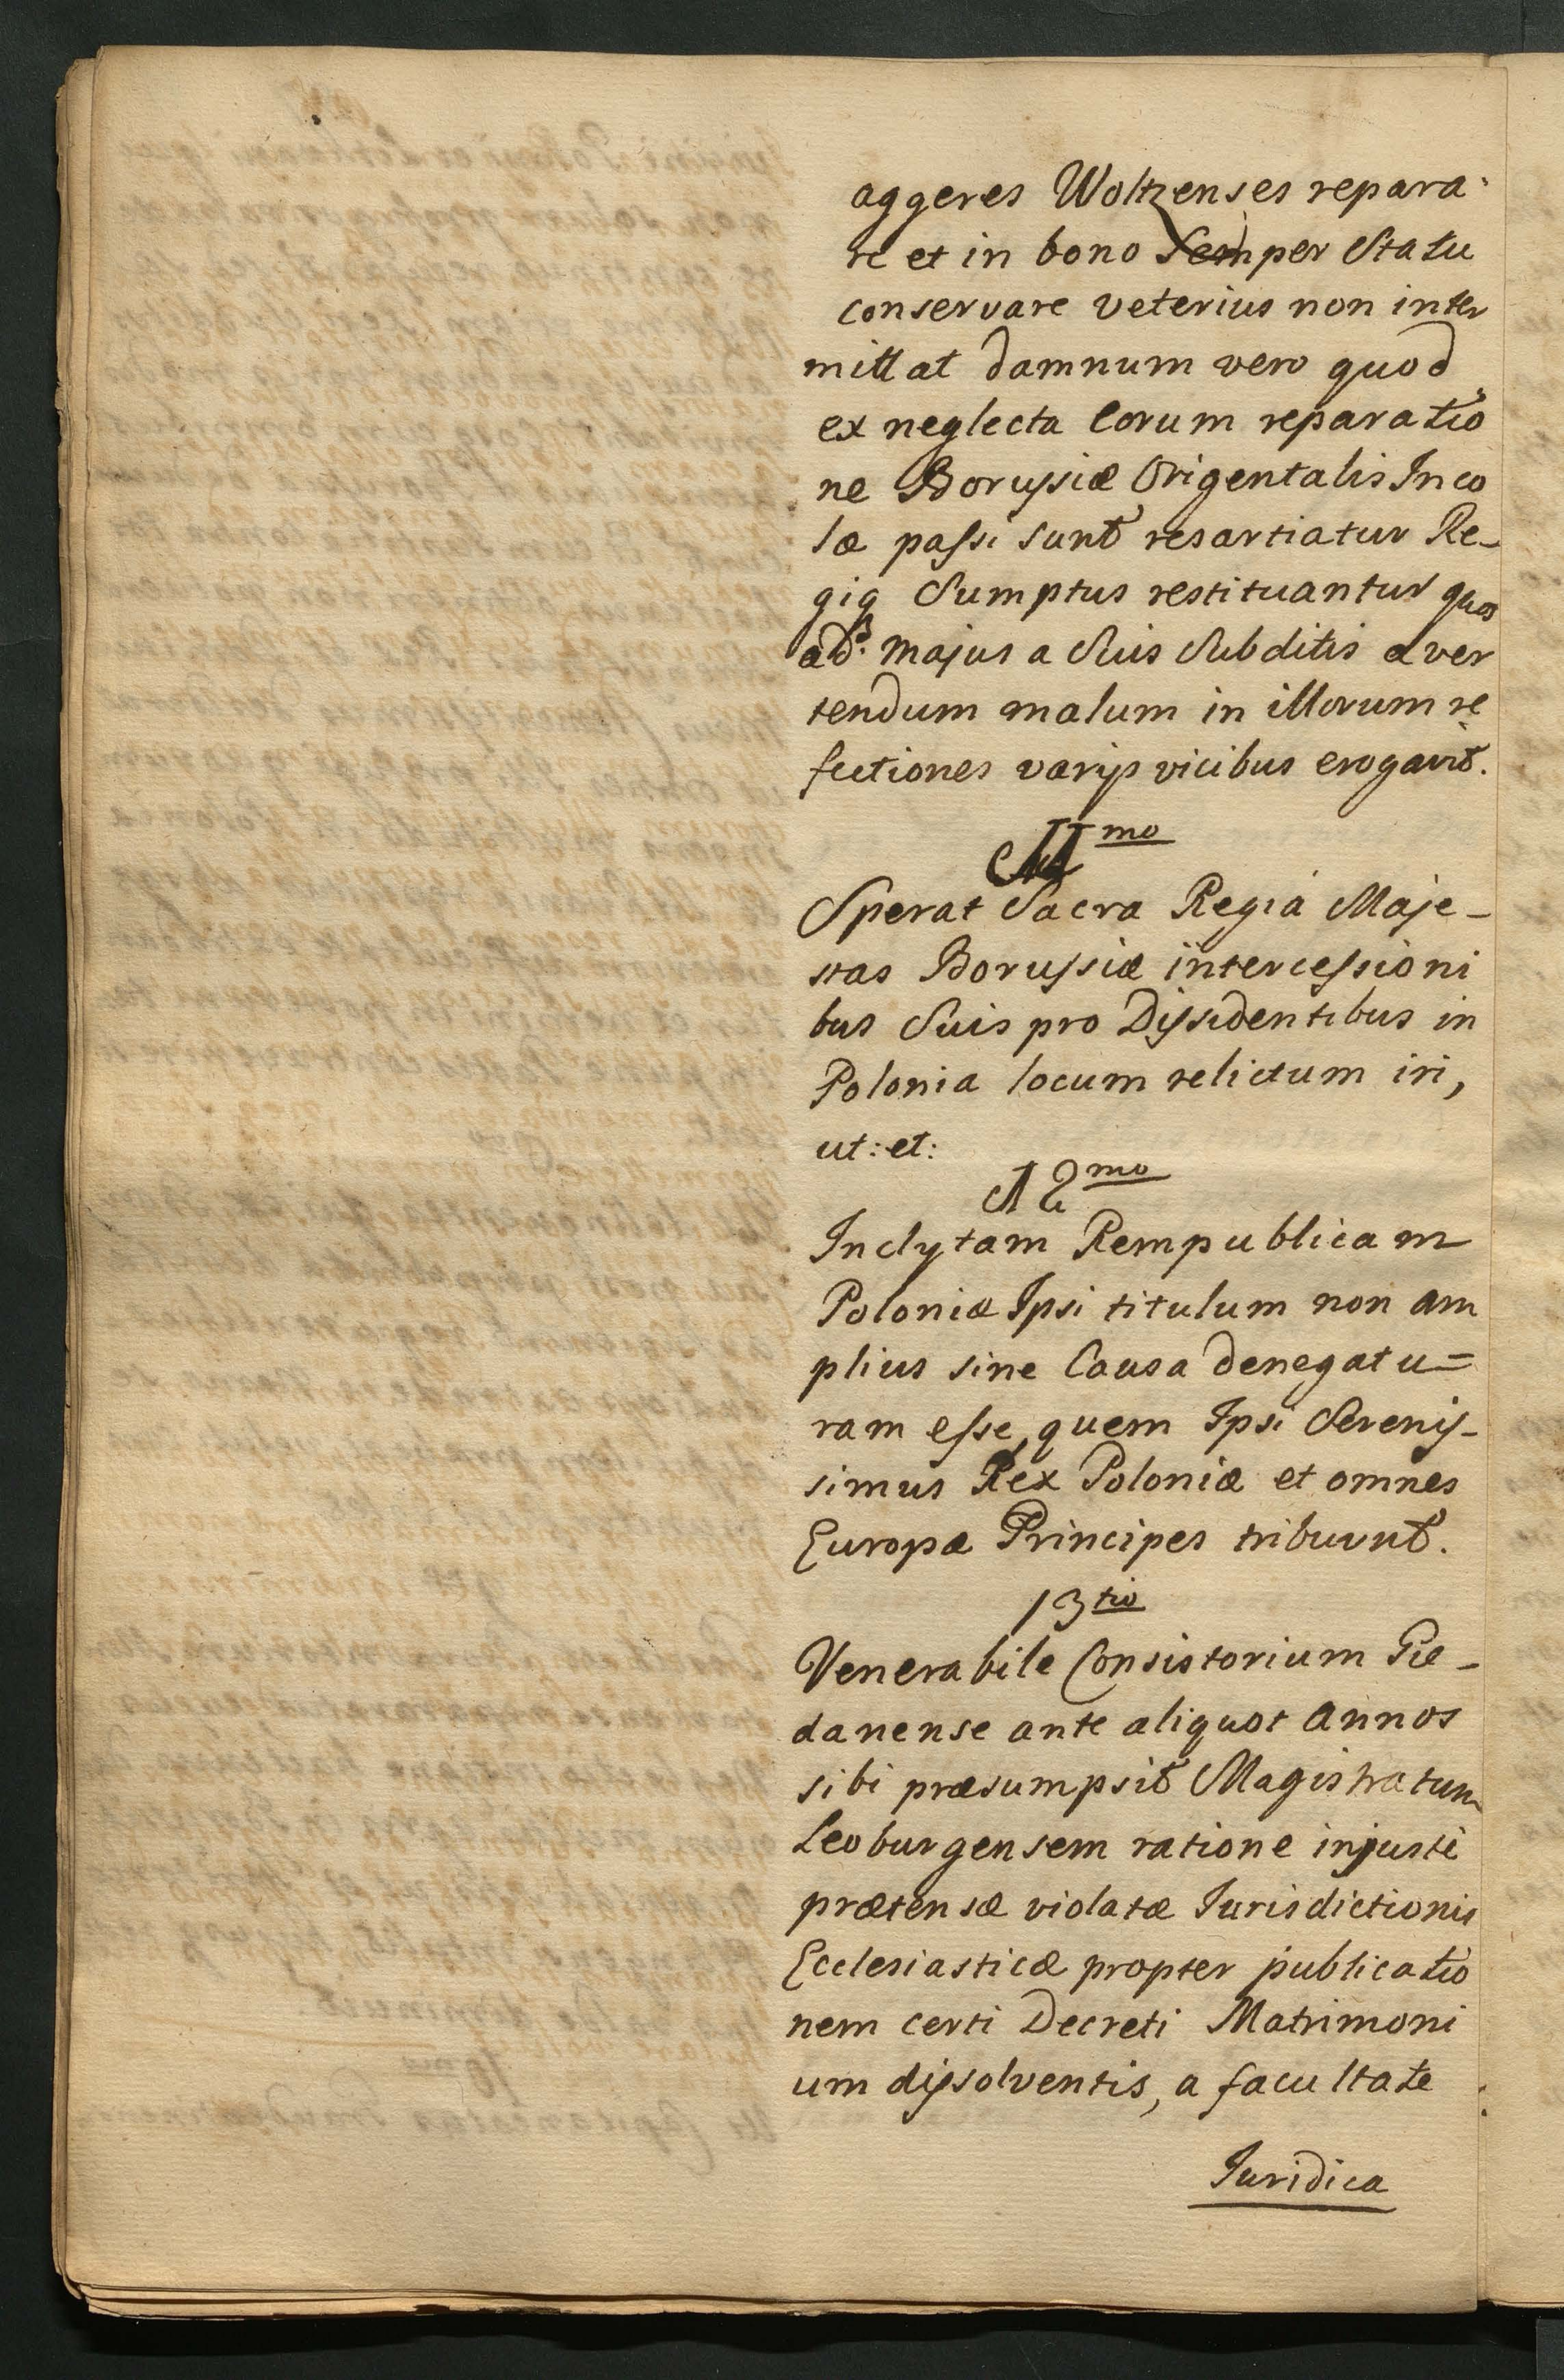 aggeres Woltzenses repara-
re et in bono semper Statu
conservare veterius non inter
mittat damnum vero quod
ex neglecta Eorum reparatio
ne Borussiæ Origentalis Inco
læ passi sunt resartiatur Re-
giq Sumptus restituantur quos
ad majus a Suis Subditis aver
tendum malum in illorum re
fectiones varijs vicibus erogavit.
11mo
Sperat Sacra Regia Maje-
stas Borussiæ intercessioni
bus Suis pro Dissidentibus in
Polonia locum relictum iri,
ut: et:
12mo
Inclytam Rempublicam
Poloniæ Ipsi titulum non am
plius sine Causa denegatu=
ram esse, quem Ipsi Serenis-
simus Rex Poloniæ et omnes
Europæ Principes tribuunt.
13tio
Venerabile Consistorium Ge-
danense ante aliquot annos
sibi præsumpsit Magistratum
Leoburgensem ratione injusti
prætensæ violatæ Iurisdictionis
Ecclesiasticæ propter publicatio
nem certi Decreti Matrimoni
um dissolventis, a facultate
Iuridica